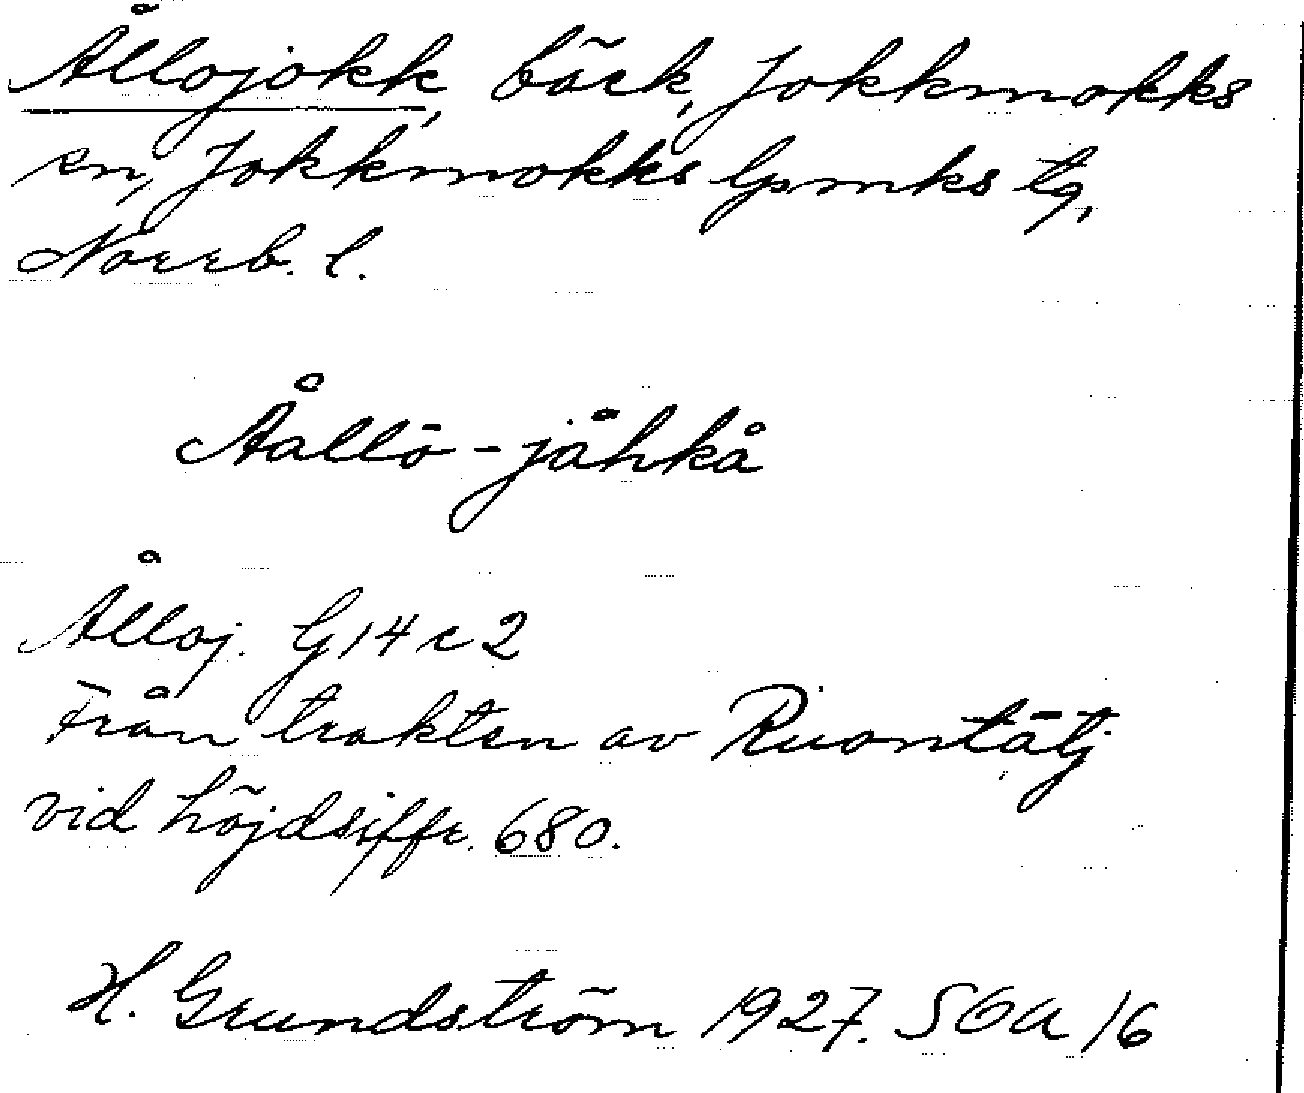 Ållojokk, bäck, Jokkmokks
sn, Jokkmokks lpmks tg,
Norrb. l.
Åallō-jåhkå
Ålloj. G14c2
Från trakten av Ruontātj
vid höjdsiffr. 680.
H. Grundström 1927. SOA 16